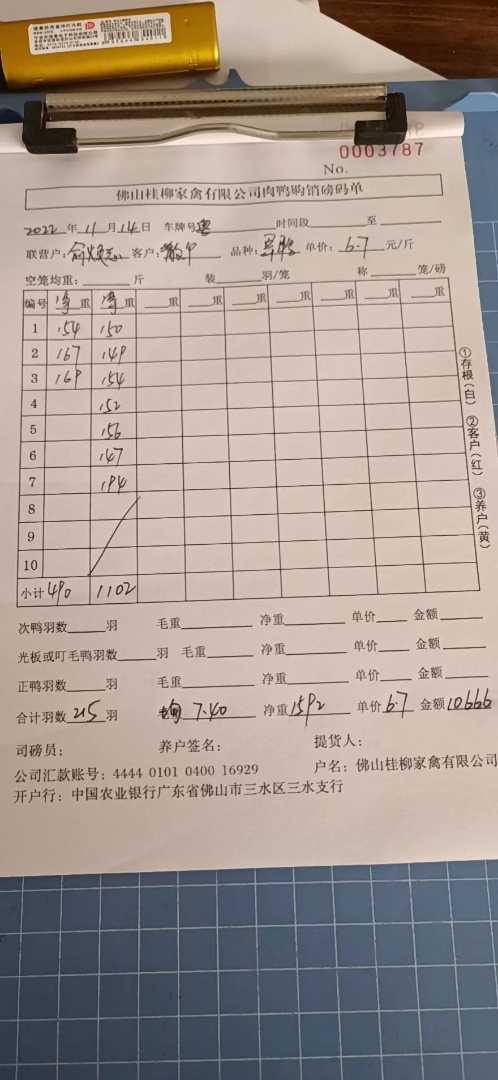 0003787
No.
佛山桂柳家禽有限公司肉鸭购销磅码单
2022年11月14日 车牌号粤 时间段 至
联营户: 客户:散户 品种: 单价:6.7元/斤
空笼均重: 斤 装 羽/笼 称 笼/磅
编号 净重 净重 重 重 重 重 重 重
1 154 150
2 167 149
3 169 154
4 152
5 156
6 147
7 194
8
9
10
小计 490 1102
①存根(白) ②客户(红) ③养户(黄)
次鸭羽数 羽 毛重 净重 单价 金额
光板或叮毛鸭羽数 羽 毛重 净重 单价 金额
正鸭羽数 羽 毛重 净重 单价 金额
合计羽数215羽 均7.40 净重1592 单价6.7 金额10666
司磅员: 养户签名: 提货人:
公司汇款账号: 4444 0101 0400 16929 户名: 佛山桂柳家禽有限公司
开户行: 中国农业银行广东省佛山市三水区三水支行